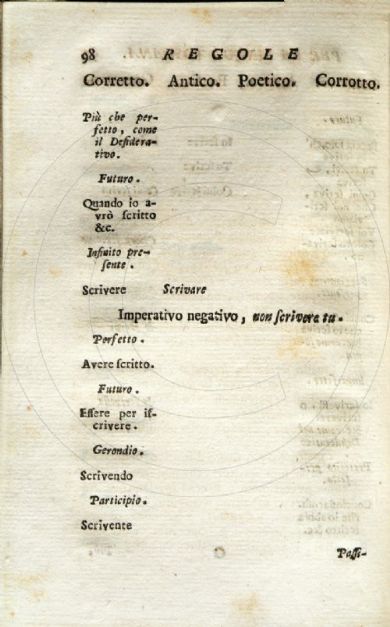 98 REGOLE
Corretto. Antico. Poetico. Corrotto.
Più che per-
fetto, come
il Desidera-
tivo.
Futuro.
Quando io a-
vrò scritto
&c.
Infinito pre-
sente.
Scrivere Scrivare
Imperativo negativo, non scrivera tu.
Perfetto.
Avere scritto.
Futuro.
Essere per is-
crivere.
Gerondio.
Scrivendo
Participio.
Scrivente
Passi-